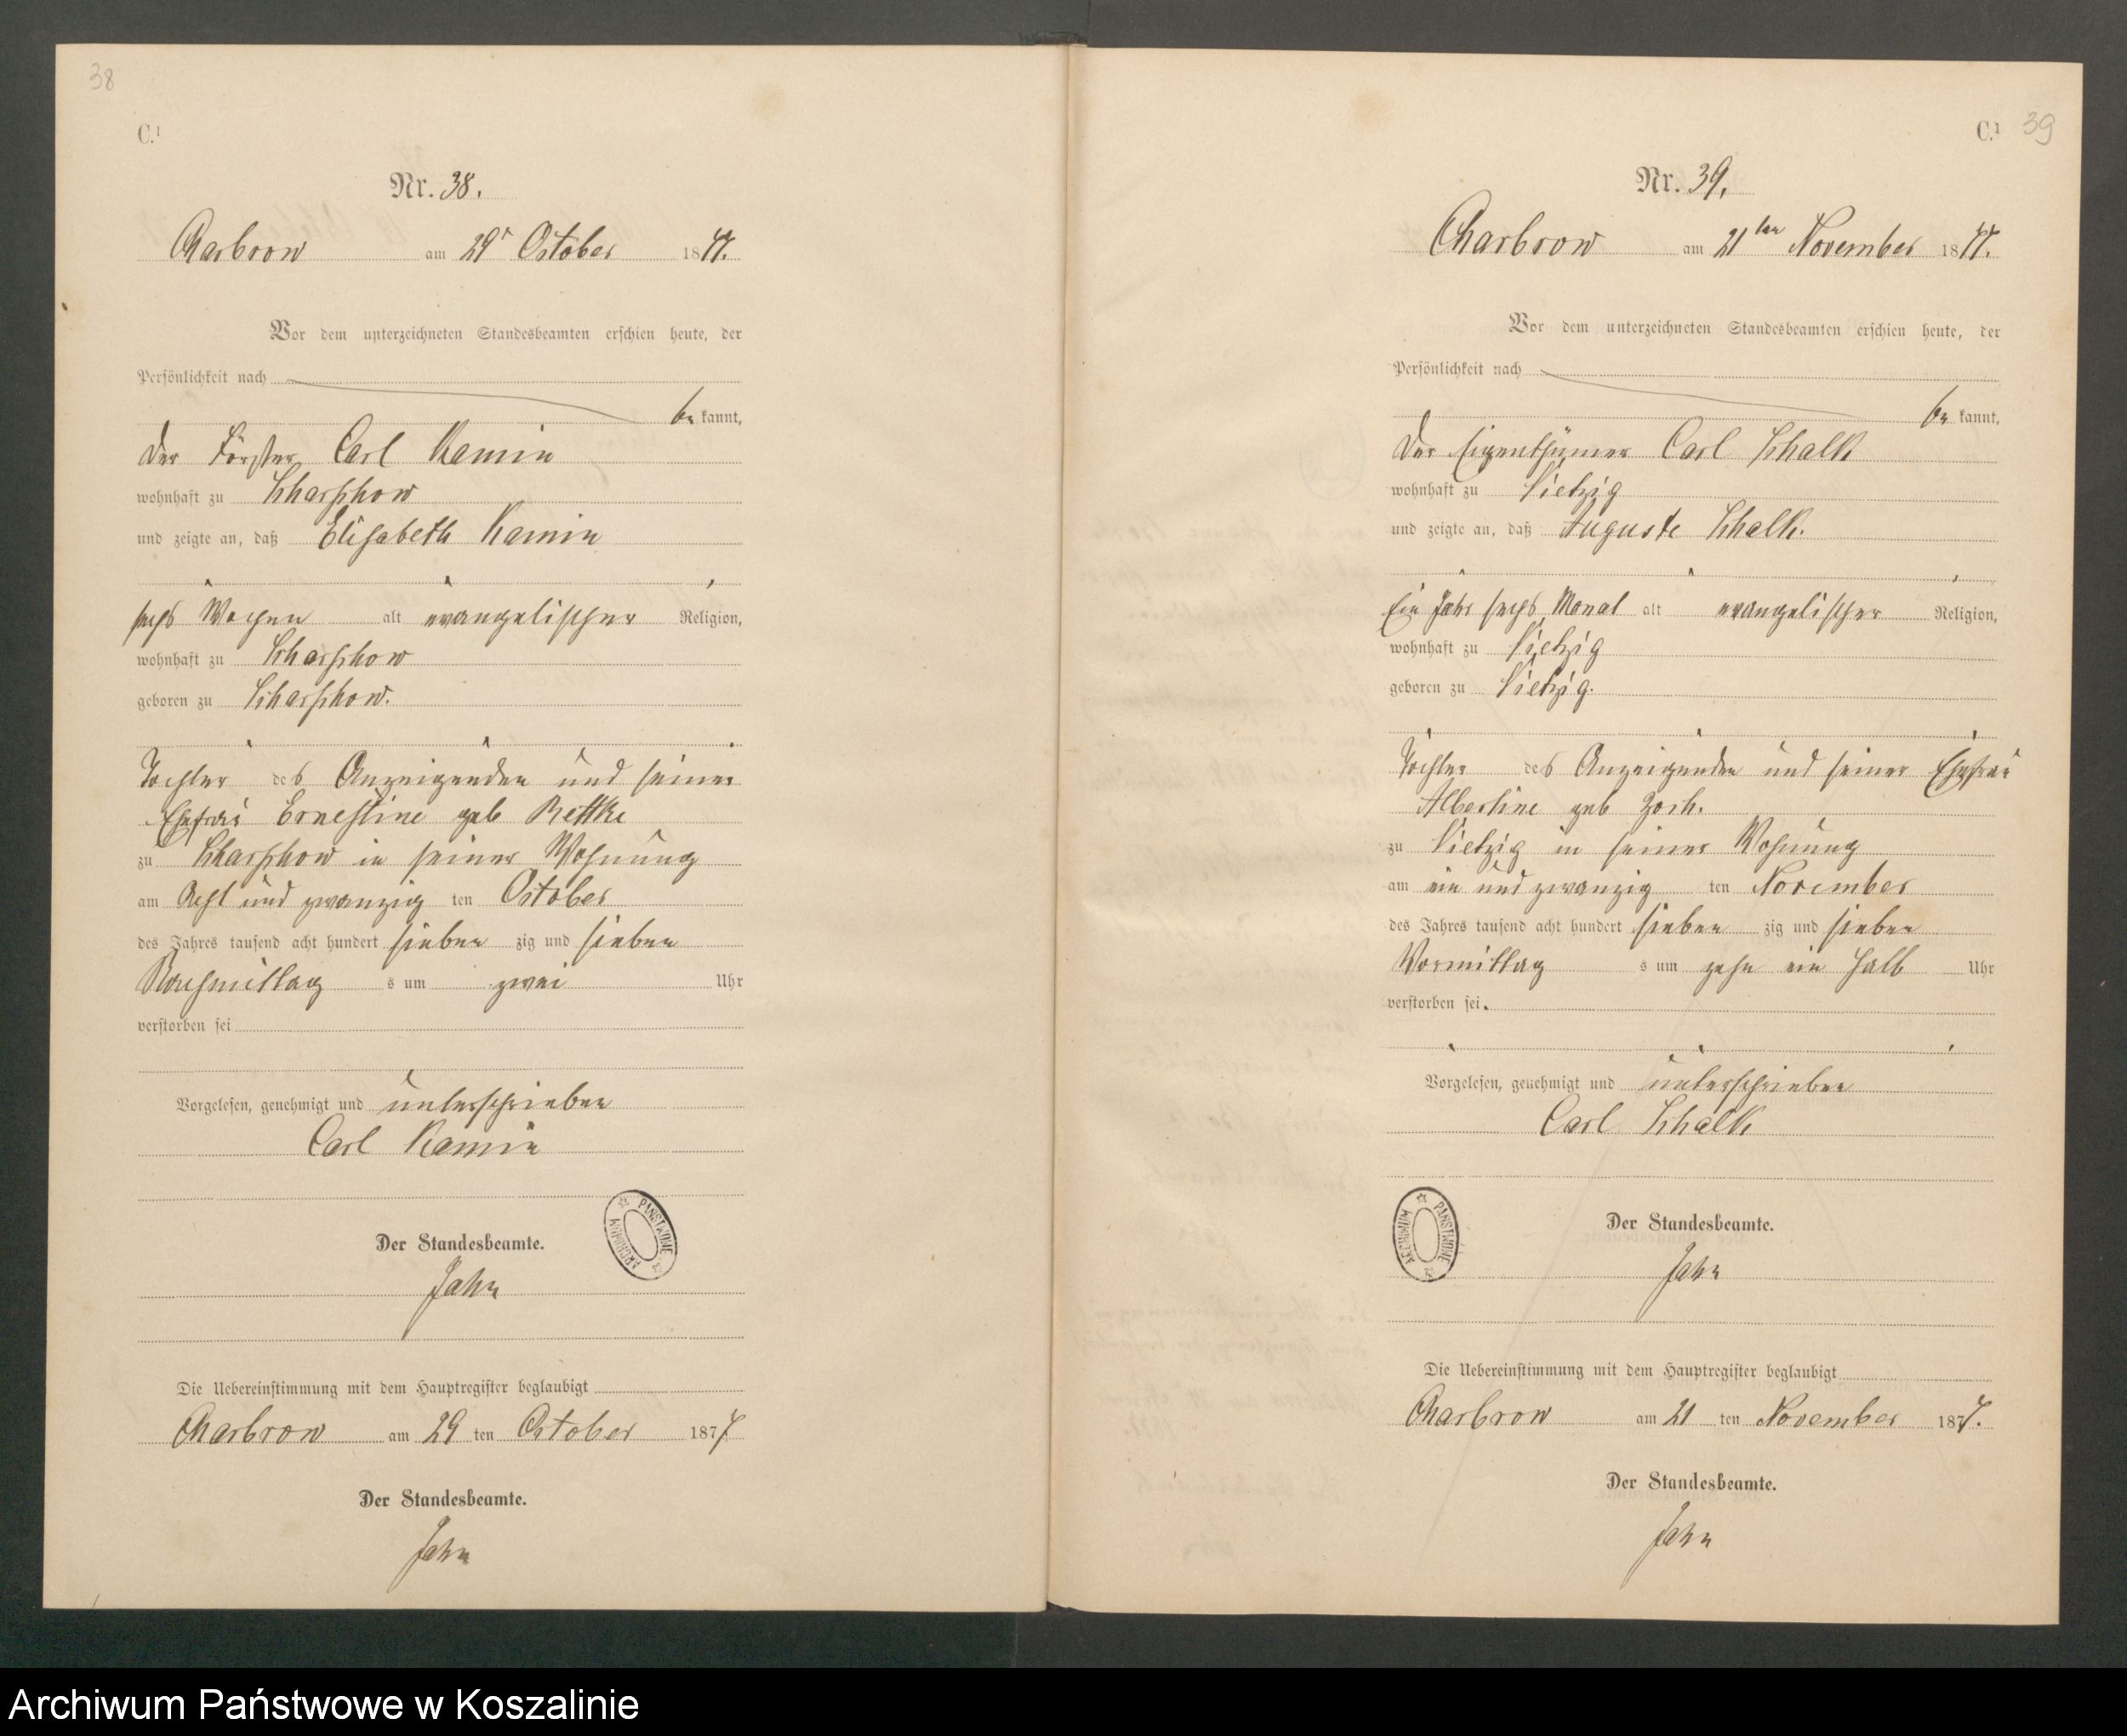 38
C.¹
Nr. 38.
Charbrow am 29ᵗ October 1877.
Vor dem unterzeichneten Standesbeamten erschien heute, der
Persönlichkeit nach
be kannt,
der Förster Carl Kamin
wohnhaft zu Scharschow
und zeigte an, daß Elisabeth Kamin
sechs Wochen alt evangelischer Religion,
wohnhaft zu Scharschow
geboren zu Scharschow.
Tochter des Anzeigenden und seiner
Ehefrau Ernestine geb Rettke
zu Scharschow in seiner Wohnung
am Acht und zwanzig ten October
des Jahres tausend acht hundert sieben zig und sieben
Nachmittag s um zwei Uhr
verstorben sei
Vorgelesen, genehmigt und unterschrieben
Carl Kamin
Der Standesbeamte.
Jahn
ARCHIWUM PAŃSTWOWE
Die Uebereinstimmung mit dem Hauptregister beglaubigt
Charbrow am 29 ten October 1877
Der Standesbeamte.
Jahn
C.¹ 39
Nr. 39.
Charbrow am 21ten November 1877.
Vor dem unterzeichneten Standesbeamten erschien heute, der
Persönlichkeit nach
be kannt,
der Eigenthümer Carl Schalk
wohnhaft zu Vietzig
und zeigte an, daß Auguste Schalk.
Ein Jahr sechs Monat alt evangelischer Religion,
wohnhaft zu Vietzig
geboren zu Vietzig.
Tochter des Anzeigenden und seiner Ehefrau
Albertine geb Zoch.
zu Vietzig in seiner Wohnung
am ein und zwanzig ten November
des Jahres tausend acht hundert sieben zig und sieben
Vormittag s um zehn ein halb Uhr
verstorben sei.
Vorgelesen, genehmigt und unterschrieben
Carl Schalk
Der Standesbeamte.
Jahn
ARCHIWUM PAŃSTWOWE
Die Uebereinstimmung mit dem Hauptregister beglaubigt
Charbrow am 21 ten November 1877.
Der Standesbeamte.
Jahn
Archiwum Państwowe w Koszalinie